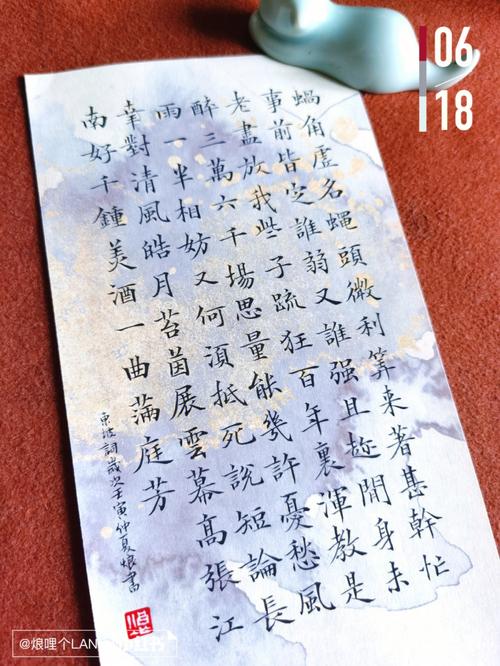 06
18
蝸角虛名蠅頭微利筭来著甚幹忙
事前皆定誰弱又誰强且趂閒身未
老盡放我些子疏狂百年裏渾教是
醉三萬六千場思量能幾許憂愁風
雨一半相妨又何湏抵死說短論長
幸對清風皓月苔茵展雲幕高張江
南好千鍾美酒一曲滿庭芳
東坡詞歲次壬寅仲夏烺書
@烺哩个LAN